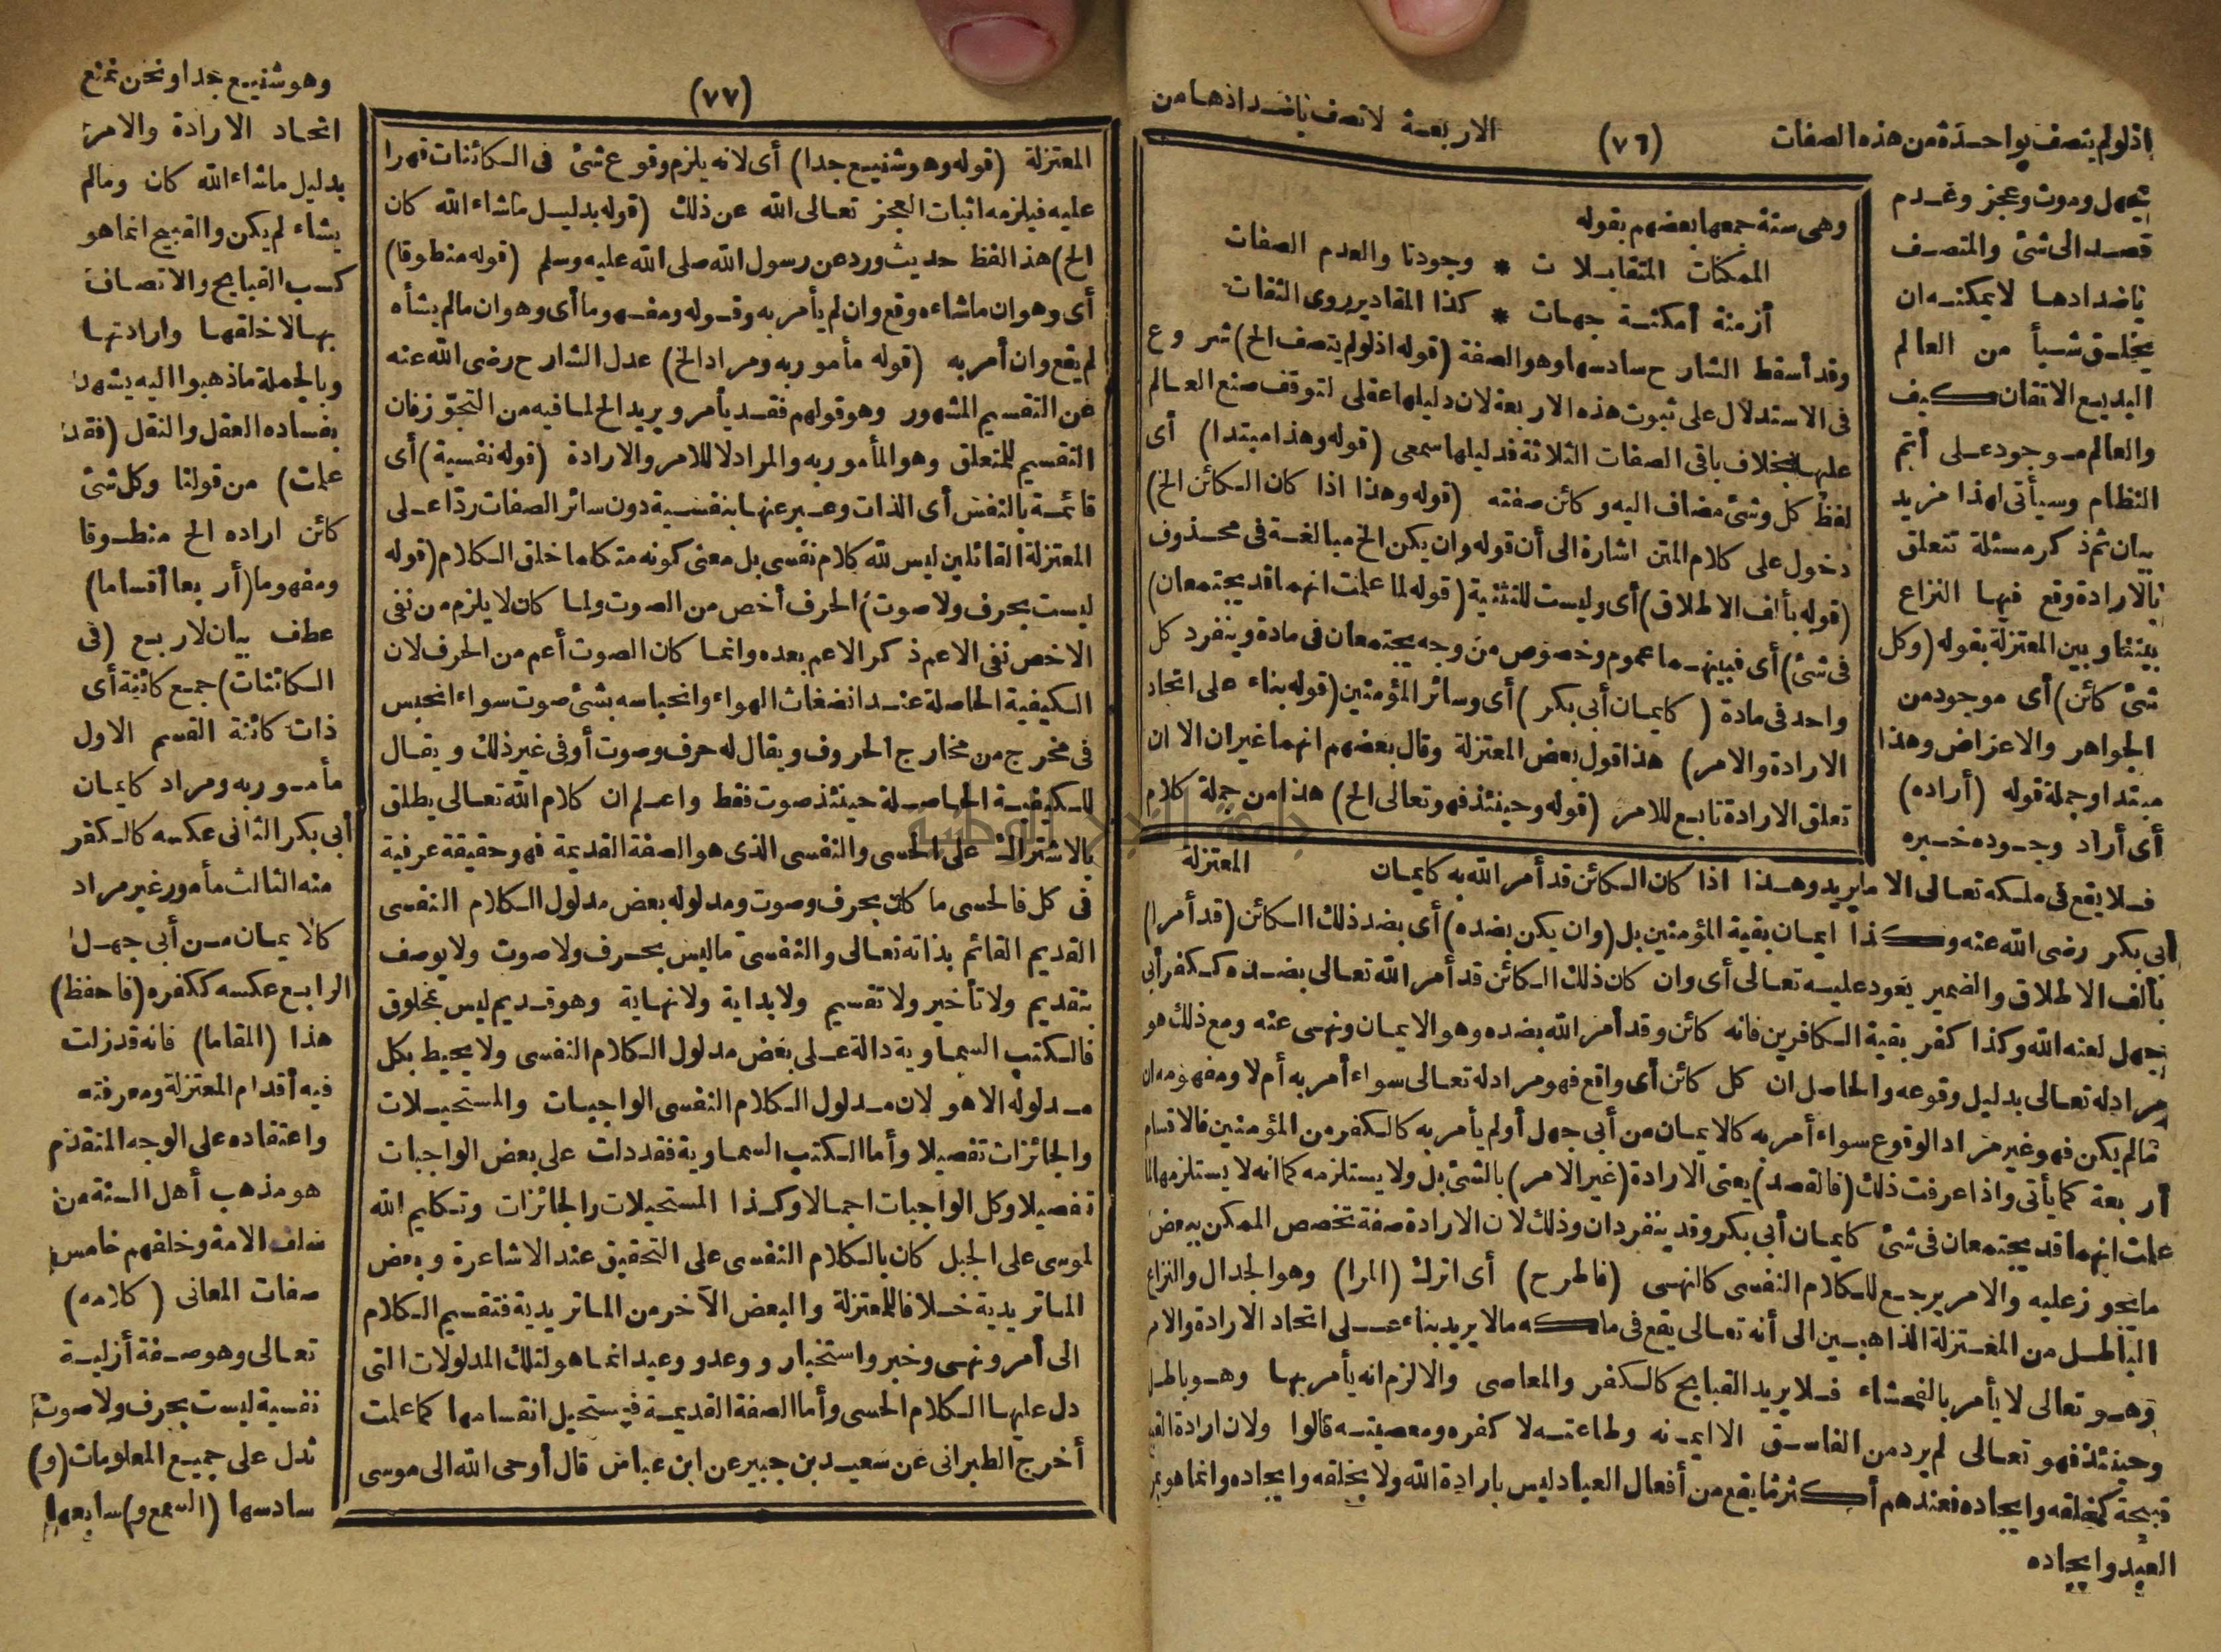 اذ لو لم يتصف بواحدة من هذه الصفات (٧٦) الاربعة لاتصف باضدادها من
جهل وموت وعجز وعدم
قصد الى شئ والمتصف
باضدادها لا يمكنه ان
يخلق شيأ من العالم
البديع الاتقان كيف
والعالم موجود على أتم
النظام وسيأتى لهذا مزيد
بيان ثم ذكر مسئلة تتعلق
بالارادة وقع فيها النزاع
بيننا وبين المعتزلة بقوله (وكل
شئ كائن) أى موجود من
الجواهر والاعراض وهذا
مبتدا وجملة قوله (أراده)
أى أراد وجوده خبره
فلا يقع فى ملكه تعالى الا ما يريد وهذا اذا كان الكائن قد أمر الله به كايمان
أبى بكر رضى الله عنه وكذا ايمان بقية المؤمنين بل (وان يكن بضده) أى بضد ذلك الكائن (قد أمرا)
بألف الاطلاق والضمير يعود عليه تعالى أى وان كان ذلك الكائن قد أمر الله تعالى بضده ككفر أبى
جهل لعنه الله وكذا كفر بقية الكافرين فانه كائن وقد أمر الله بضده وهو الايمان ونهى عنه ومع ذلك هو
مراد له تعالى بدليل وقوعه والحاصل ان كل كائن أى واقع فهو مراد له تعالى سواء أمر به أم لا ومفهومه ان
مالم يكن فهو غير مراد الوقوع سواء أمر به كالايمان من أبى جهل أو لم يأمر به كالكفر من المؤمنين فالاقسام
أربعة كما يأتى واذا عرفت ذلك (فالقصد) يعنى الارادة (غير الامر) بالشئ بل ولا يستلزمه كما انه لا يستلزمها لما
علمت انهما قد يجتمعان فى شئ كايمان أبى بكر وقد ينفردان وذلك لان الارادة صفة تخصص الممكن ببعض
ما يجوز عليه والامر يرجع للكلام النفسى كالنهى (فاطرح) أى اترك (المرا) وهو الجدال والنزاع
الباطل من المعتزلة الذاهبين الى أنه تعالى يقع فى ملكه مالا يريد بناء على اتحاد الارادة والامر
وهو تعالى لا يأمر بالفحشاء فلا يريد القبايح كالكفر والمعاصى والا لزم انه يأمر بها وهو باطل
وحينئذ فهو تعالى لم يرد من الفاسق الا ايمانه وطاعته لا كفره ومعصيته قالوا ولان ارادة القبيح
قبيحة كخلقه وايجاده فعندهم أكثر ما يقع من أفعال العباد ليس بارادة الله ولا بخلقه وايجاده وانما هو
العبد وايجاده
وهى ستة جمعها بعضهم بقوله
الممكنات المتقابلات * وجودنا والعدم الصفات
أزمنة أمكنة جهات * كذا المقادير روى الثقات
وقد أسقط الشارح سادسها وهو الصفة (قوله اذ لو لم يتصف الخ) شروع
فى الاستدلال على ثبوت هذه الاربعة لان دليلها عقلى لتوقف صنع العالم
عليها بخلاف باقى الصفات الثلاثة فدليلها سمعى (قوله وهذا مبتدا) أى
لفظ كل وشئ مضاف اليه وكائن صفته (قوله وهذا اذا كان الكائن الخ)
دخول على كلام المتن اشارة الى أن قوله وان يكن الخ مبالغة فى محذوف
(قوله بألف الاطلاق) أى وليست للتثنية (قوله لما علمت انهما قد يجتمعان)
فى شئ) أى فبينهما عموم وخصوص من وجه يجتمعان فى مادة وينفرد كل
واحد فى مادة (كايمان أبى بكر) أى وسائر المؤمنين (قوله بناء على اتحاد
الارادة والامر) هذا قول بعض المعتزلة وقال بعضهم انهما غيران الا ان
تعلق الارادة تابع للامر (قوله وحينئذ فهو تعالى الخ) هذا من جملة كلام
المعتزلة
(٧٧)
المعتزلة (قوله وهو شنيع جدا) أى لانه يلزم وقوع شئ فى الكائنات قهرا
عليه فيلزمه اثبات العجز تعالى الله عن ذلك (قوله بدليل ما شاء الله كان
الخ) هذا الفظ حديث ورد عن رسول الله صلى الله عليه وسلم (قوله منطوقا)
أى وهو ان ما شاءه وقع وان لم يأمر به وقوله ومفهوما أى وهو ان مالم يشأه
لم يقع وان أمر به (قوله مأمور به ومراد الخ) عدل الشارح رضى الله عنه
عن التقسيم المشهور وهو قولهم فقد يأمر ويريد الخ لما فيه من التجوز فان
التقسيم للمتعلق وهو المأمور به والمراد لا للامر والارادة (قوله نفسية) أى
قائمة بالنفس أى الذات وعبر عنها بنفسية دون سائر الصفات ردا على
المعتزلة القائلين ليس لله كلام نفسى بل معنى كونه متكلما خلق الكلام (قوله
ليست بحرف ولا صوت) الحرف أخص من الصوت ولما كان لا يلزم من نفى
الاخص نفى الاعم ذكر الاعم بعده وانما كان الصوت أعم من الحرف لان
الكيفية الحاصلة عند انضغاث الهواء وانحباسه بشئ صوت سواء انحبس
فى مخرج من مخارج الحروف ويقال له حرف وصوت أو فى غير ذلك ويقال
للكيفية الحاصلة حينئذ صوت فقط واعلم ان كلام الله تعالى يطلق
بالاشتراك على الحسى والنفسى الذى هو الصفة القديمة فهو حقيقة عرفية
فى كل فالحسى ما كان بحرف وصوت ومدلوله بعض مدلول الكلام النفسى
القديم القائم بذاته تعالى والنفسى ما ليس بحرف ولا صوت ولا يوصف
بتقديم ولا تأخير ولا تقسيم ولا بداية ولا نهاية وهو قديم ليس بمخلوق
فالكتب السماوية دالة على بعض مدلول الكلام النفسى ولا يحيط بكل
مدلوله الا هو لان مدلول الكلام النفسى الواجبات والمستحيلات
والجائزات تفصيلا وأما الكتب السماوية فقد دلت على بعض الواجبات
تفصيلا وكل الواجبات اجمالا وكذا المستحيلات والجائزات وتكليم الله
لموسى على الجبل كان بالكلام النفسى على التحقيق عند الاشاعرة وبعض
الماتريدية خلافا للمعتزلة والبعض الآخر من الماتريدية فتقسيم الكلام
الى أمر ونهى وخبر واستخبار ووعد ووعيد انما هو لتلك المدلولات التى
دل عليها الكلام الحسى وأما الصفة القديمة فيستحيل انقسامها كما علمت
أخرج الطبرانى عن سعيد بن جبير عن ابن عباس قال أوحى الله الى موسى
وهو شنيع جدا ونحن نمنع
اتحاد الارادة والامر
بدليل ما شاء الله كان ومالم
يشاء لم يكن والقبيح انما هو
كسب القبايح والاتصاف
بها لا خلقها وارادتها
وبالجملة ماذهبوا اليه يشهد
بفساده العقل والنقل (فقد
علمت) من قولنا وكل شئ
كائن اراده الخ منطوقا
ومفهوما (أربعا أقساما)
عطف بيان لاربع (فى
الكائنات) جمع كائنة أى
ذات كائنة القسم الاول
مأمور به ومراد كايمان
أبى بكر الثانى عكسه كالكفر
منه الثالث مأمور غير مراد
كالايمان من أبى جهل
الرابع عكسه ككفره (فاحفظ)
هذا (المقاما) فانه قد زلت
فيه أقدام المعتزلة ومعرفته
واعتقاده على الوجه المتقدم
هو مذهب أهل السنة من
سلف الامة وخلفهم خامس
صفات المعانى (كلامه)
تعالى وهو صفة أزلية
نفسية ليست بحرف ولا صوت
تدل على جميع المعلومات (و)
سادسها (السمع و) سابعها